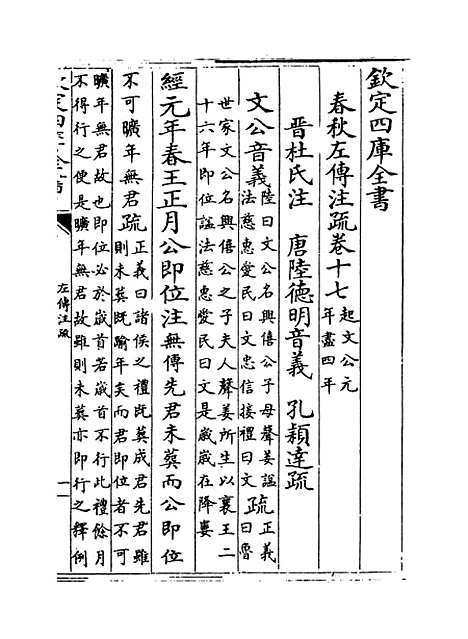 欽定四庫全書
春秋左傳注疏卷十七
起文公元
年盡四年
晉杜氏注　唐陸德明音義　孔穎達疏
文公音義
陸曰文公名興僖公子母聲姜諡
法慈惠愛民曰文忠信接禮曰文
疏
正義
曰魯
世家文公名興僖公之子夫人聲姜所生以襄王二
十六年即位諡法慈惠愛民曰文是歲歲在降婁
經元年春王正月公即位注無傳先君未葬而公即位
不可曠年無君疏
正義曰諸侯之禮既葬成君先君雖
則未葬既踰年矣而君即位者不可
曠年無君故也即位必於歲首若歲首不行此禮餘月
不得行之便是曠年無君故雖則未葬亦即行之釋例
左傳注疏
一